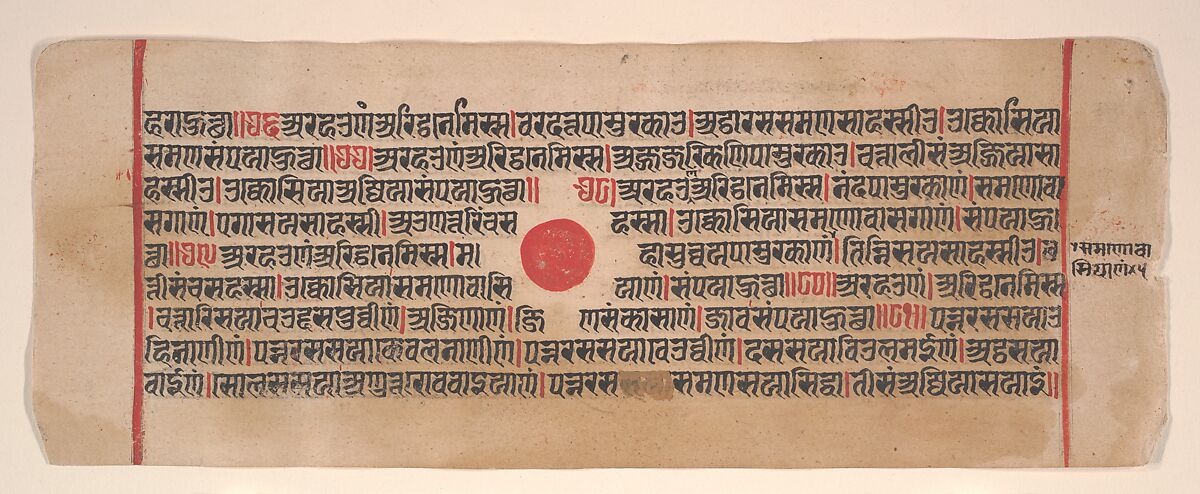 हराहुत्था॥७६अरहउणंअरिट्ठनेमिस्स।वरदत्तपामुरकाउ।अट्ठारससमणसाहस्सीउ।उक्कोसिया
समणसंपयाहुत्था॥७७।अरहउणंअरिट्ठनेमिस्स।अज्जजरिकणिपामुरकाउ।चत्तालीसंअज्जियासा
हस्सीउ।उक्कोसियाअज्जियासंपयाहुत्था॥ ७८।अरहउणंअरिट्ठनेमिस्स।नंदपामुरकाणं।समणोवा
सगाणं।एगासयसाहस्सी।अउणत्तरिंचस हस्सा।उक्कोसियासमणोवासगाणं।संपयाहु
त्था॥७९ अरहउणंअरिट्ठनेमिस्स।म हासुव्वयापामुरकाणं।तिन्निसयसाहस्सीउ।छ
त्तीसंचसहस्सा।उक्कोसियासमणोवासि याणं।संपयाहुत्था॥८०॥अरहउणं।अरिट्ठनेमिस्स
।चत्तारिसयाचउद्दसपुव्वीणं।अजिणाणं।जि णसंकासाणं।जावसंपयाहुत्था॥८१॥पन्नरससयाउ
हिनाणीणं।पन्नरससयाकेवलनाणीणं।पन्नरससयावेउव्वीणं।दससयाविउलमईणं।अट्ठसया
वाईणं।सोलससयाअणुत्तरोववाइयाणं।पन्नरस समणसयासिद्धा।तीसंअज्जियासयाइं॥
समणोवा
सियाणं